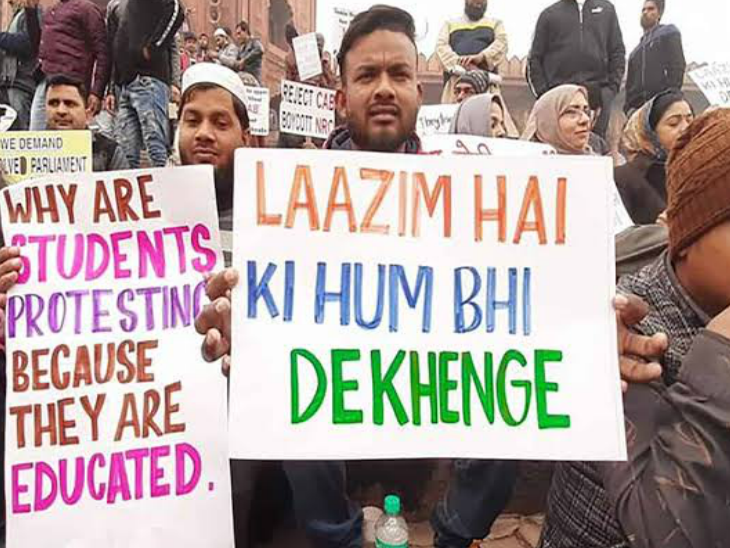 WE DEMAND
LVED PARLIAMENT
WHY ARE
STUDENTS
PROTESTING
BECAUSE
THEY ARE
EDUCATED.
REJECT CAB
BOYCOTT NRC
LAAZIM HAI
KI HUM BHI
DEKHENGE